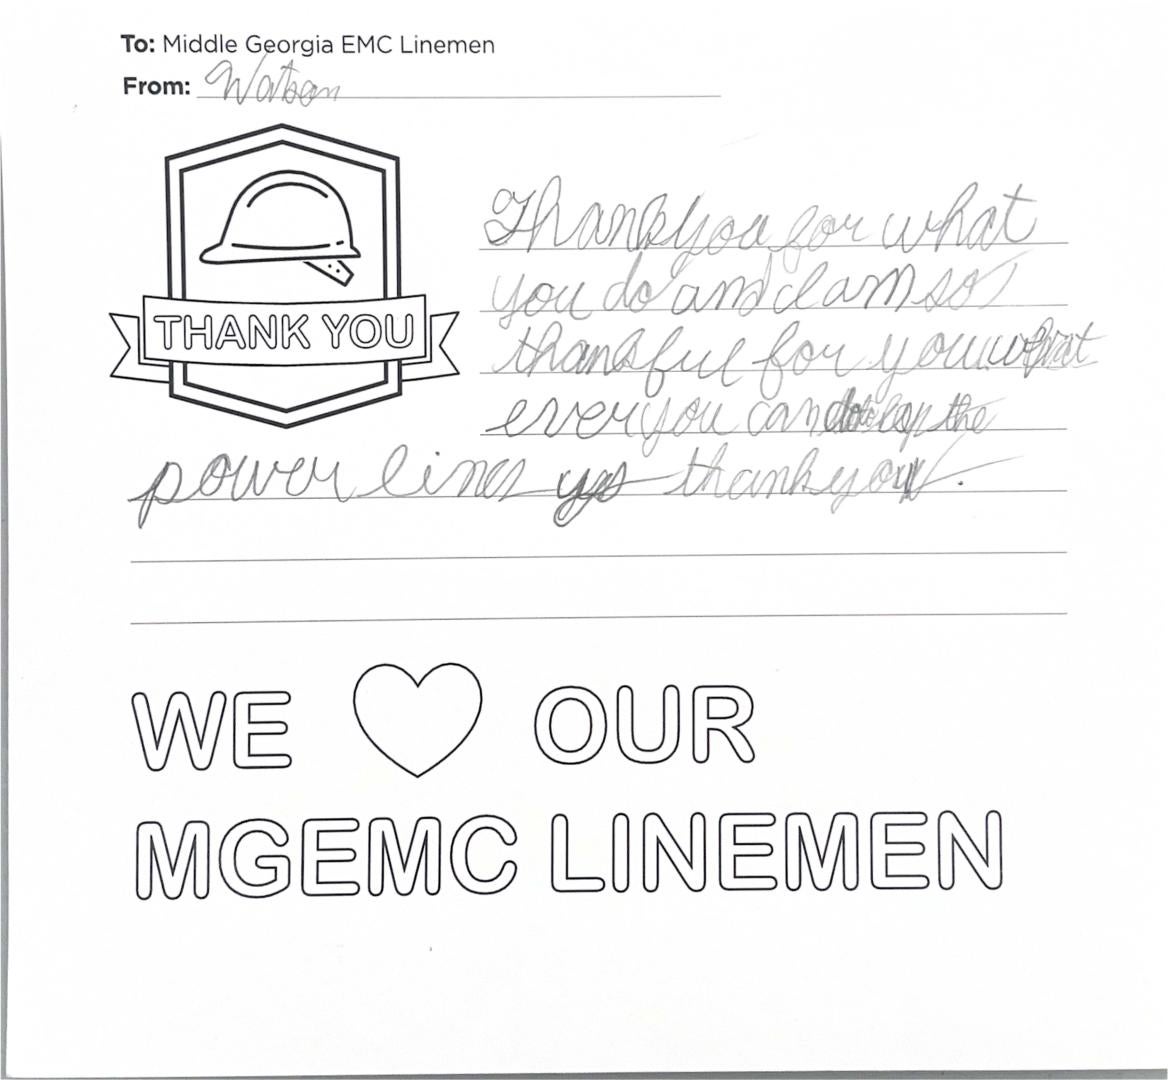 To: Middle Georgia EMC Linemen
From: Watson
THANK YOU
Thank you for what
you do and I am so
thankful for you what
ever you can do the
power lines yes thank you.
WE OUR
MGEMC LINEMEN